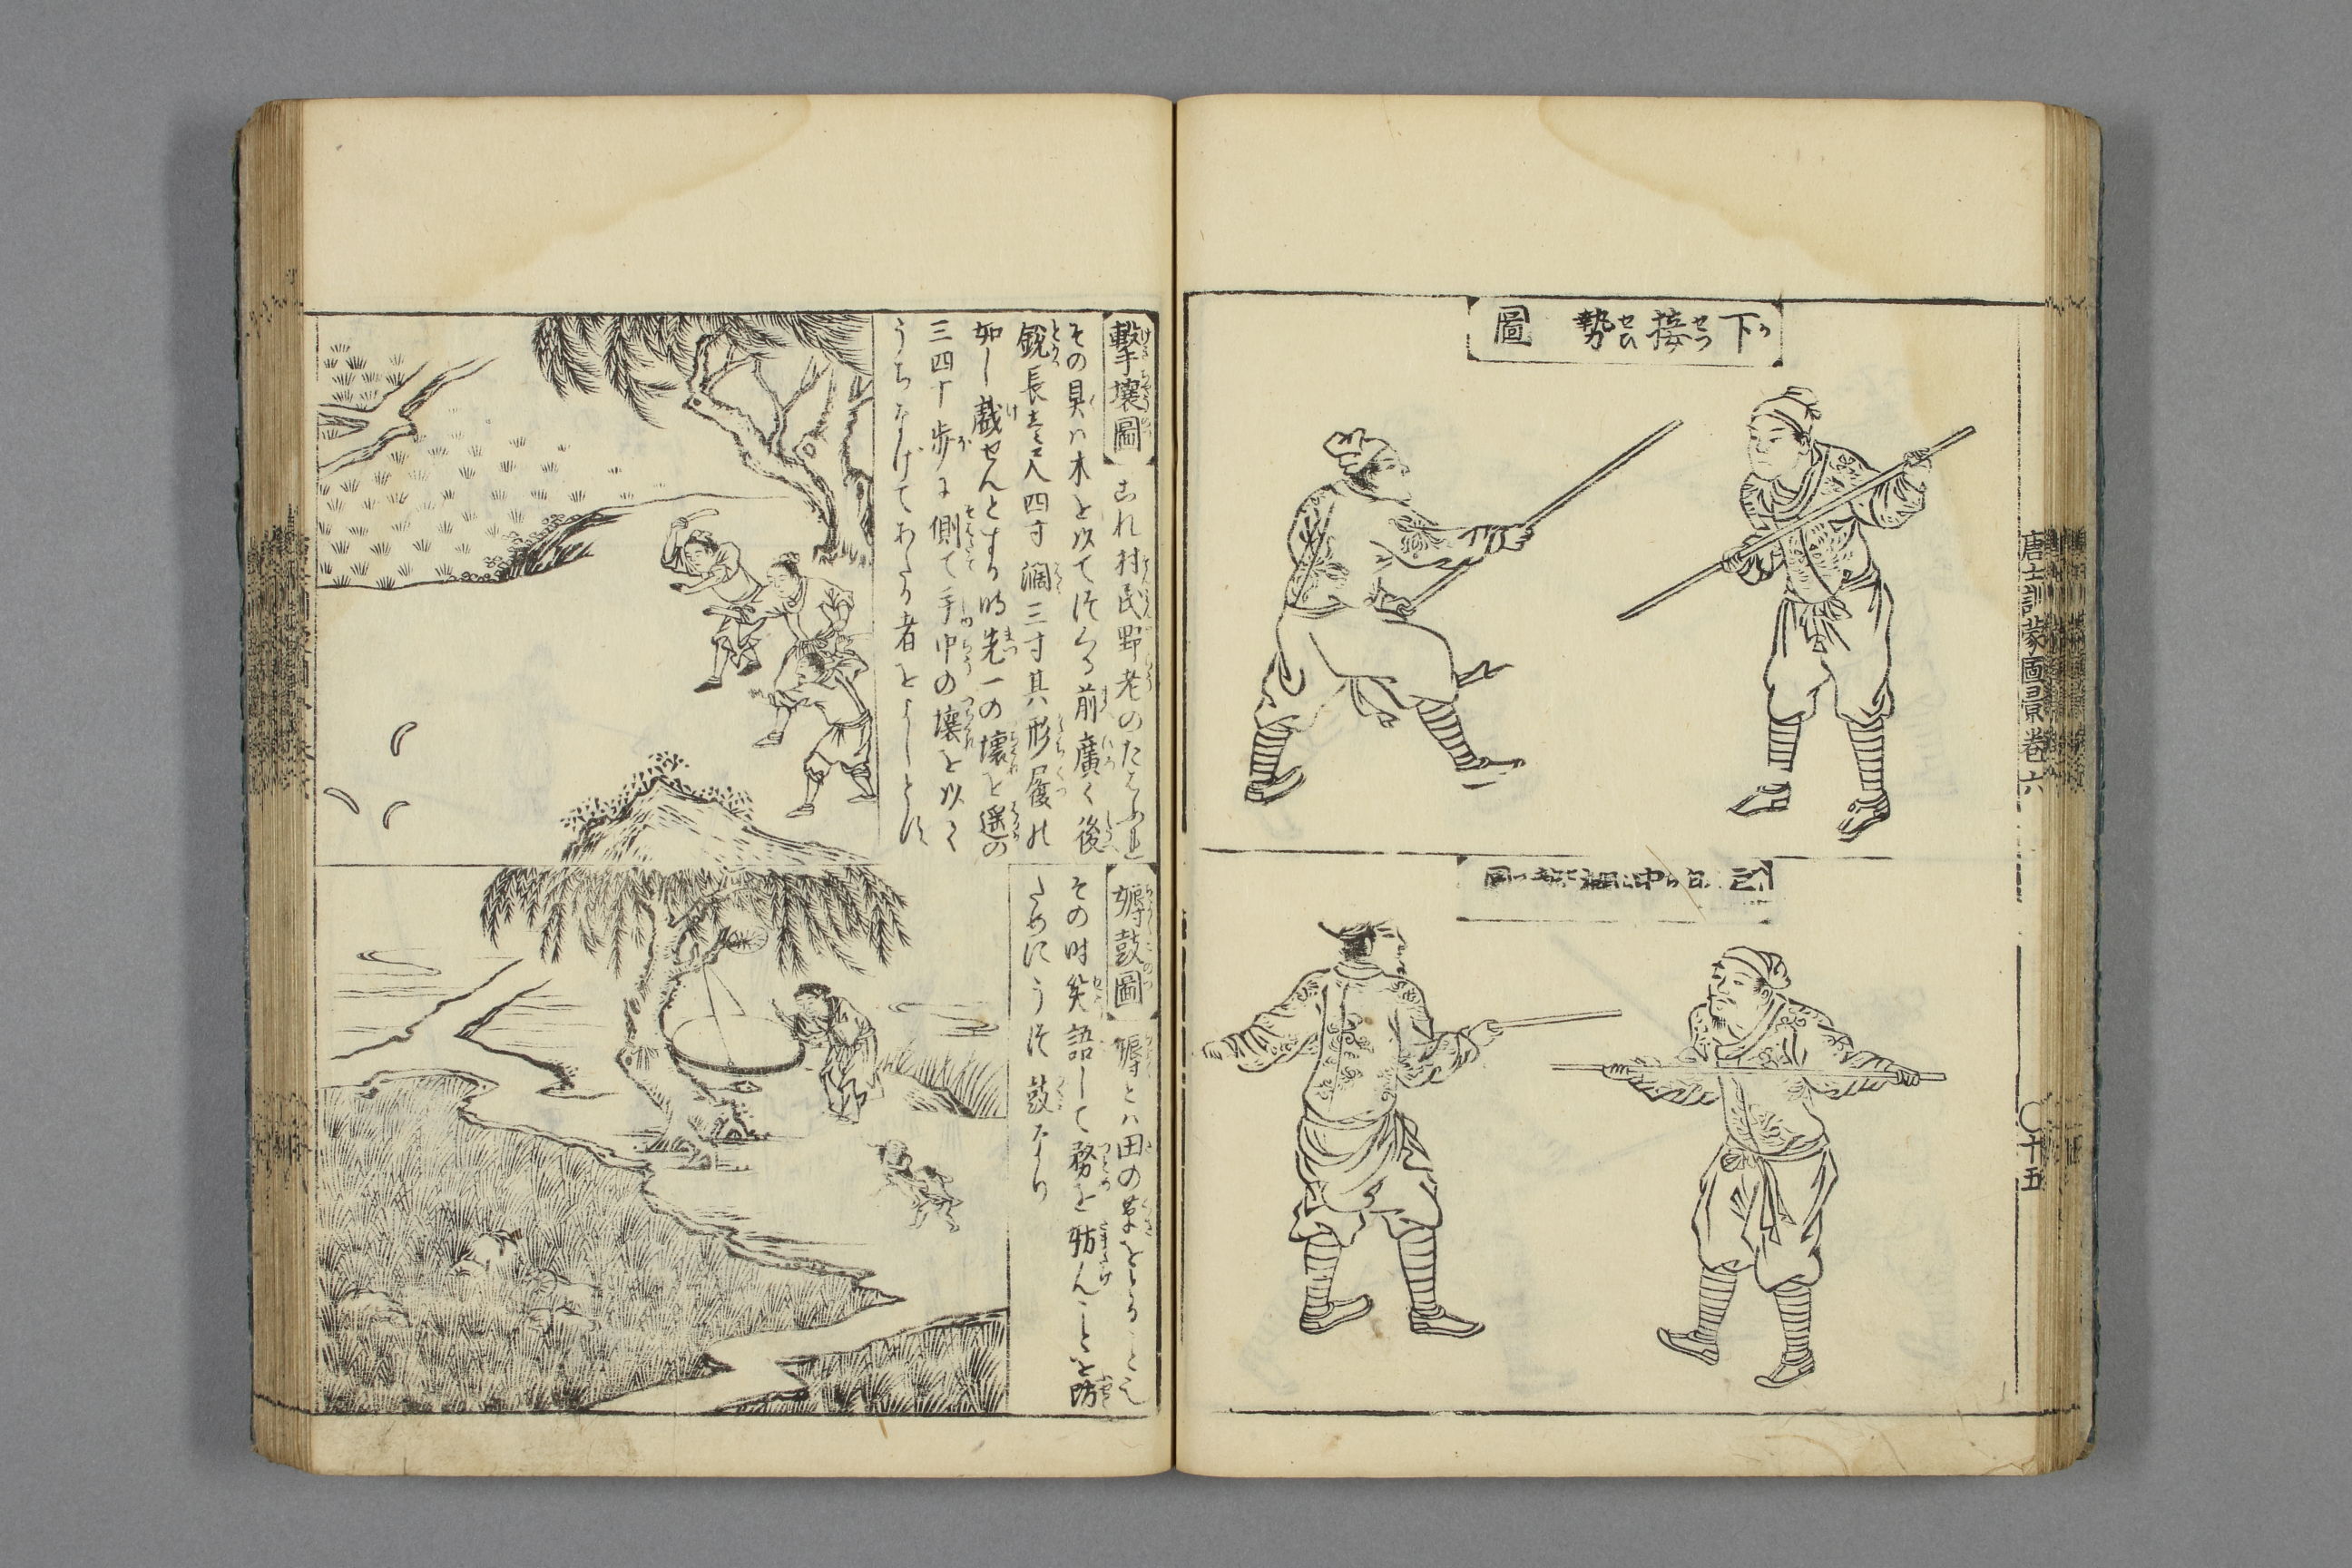 下接勢圖
唐土訓蒙圖彙卷六
〇十五
擊壤圖
これ村民野老のたはふれ
その具ハ木を以てつくる前廣く後
銳長壱尺四寸濶三寸其形履の
如し戯せんとする時先一の壤を遥の
三四十歩に側て手中の壤を以て
うちなげてあたる者をよしとす
耨鼓圖
耨とハ田の草をとることそ
その時笑語して務を妨んことを防
ためにうつ鼓なり